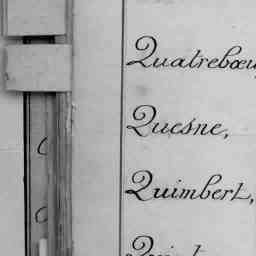 Quatrebœu
Quesne,
Quimbert,